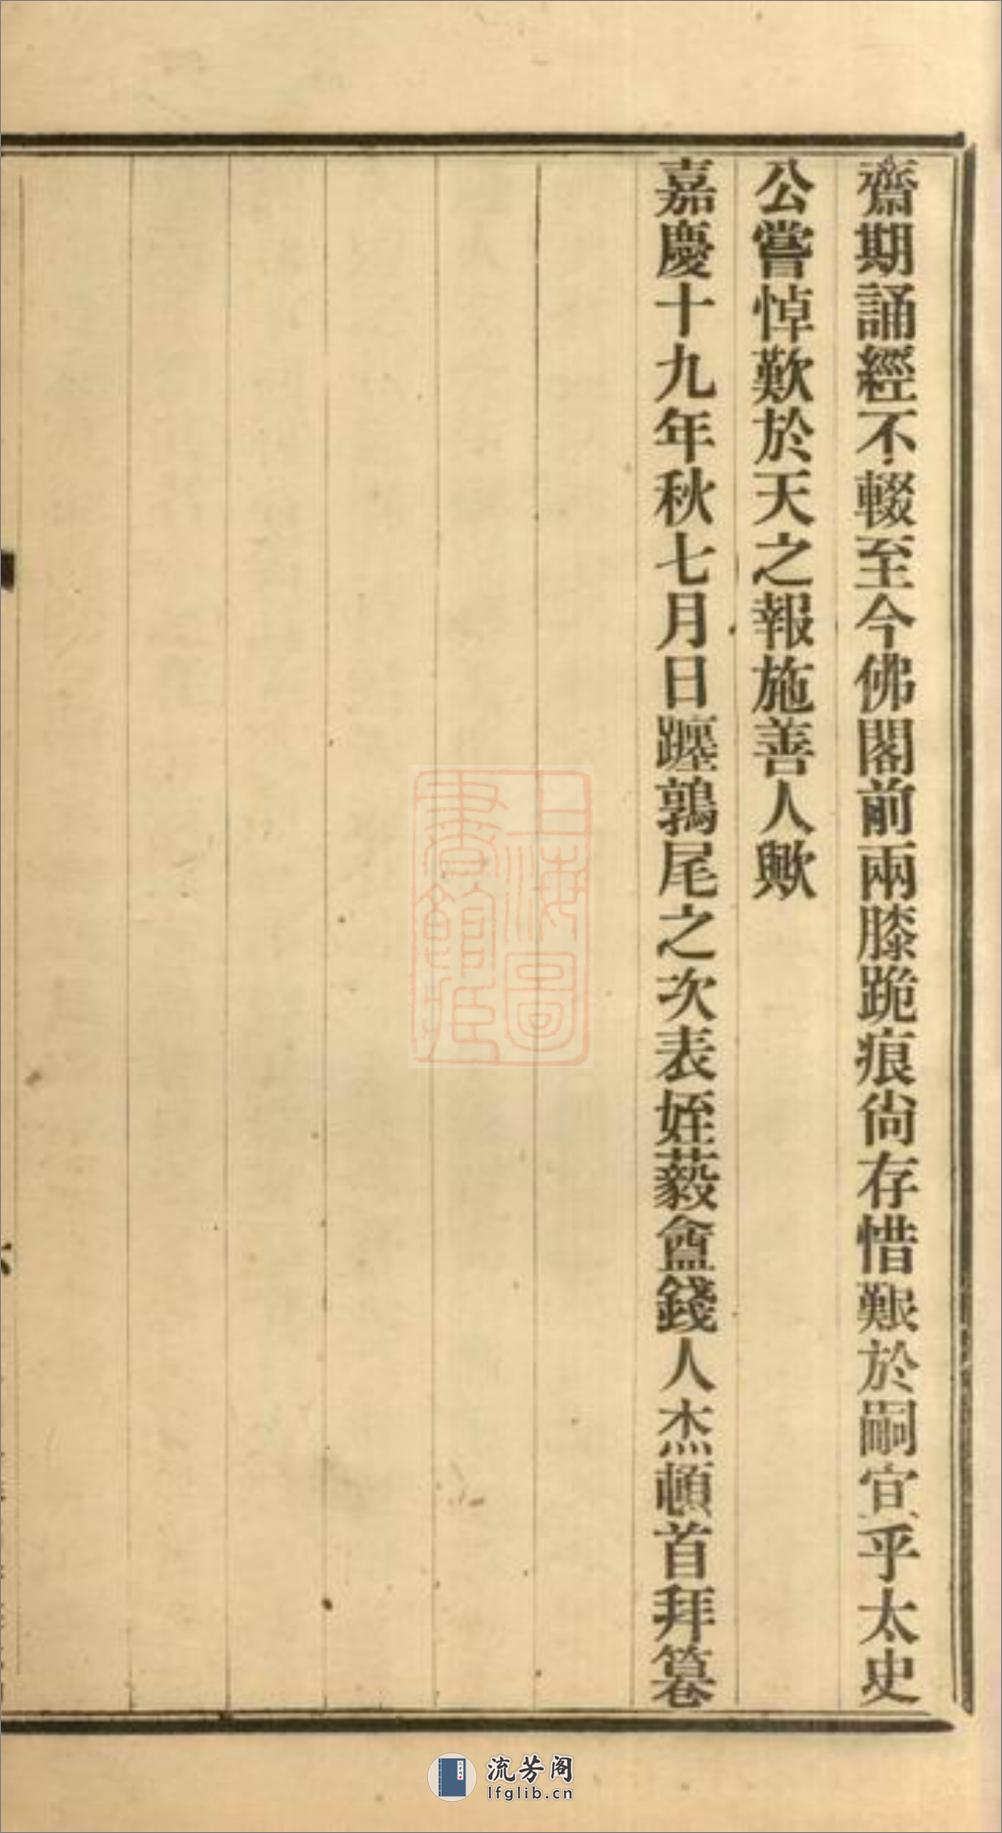 齋期誦經不輟至今佛閣前兩膝跪痕尙存惜艱於嗣宜乎太史
公嘗悼歎於天之報施善人歟
嘉慶十九年秋七月日躔鶉尾之次表姪蓺盦錢人杰頓首拜篹
上海圖
書館藏
流芳阁
lfglib.cn